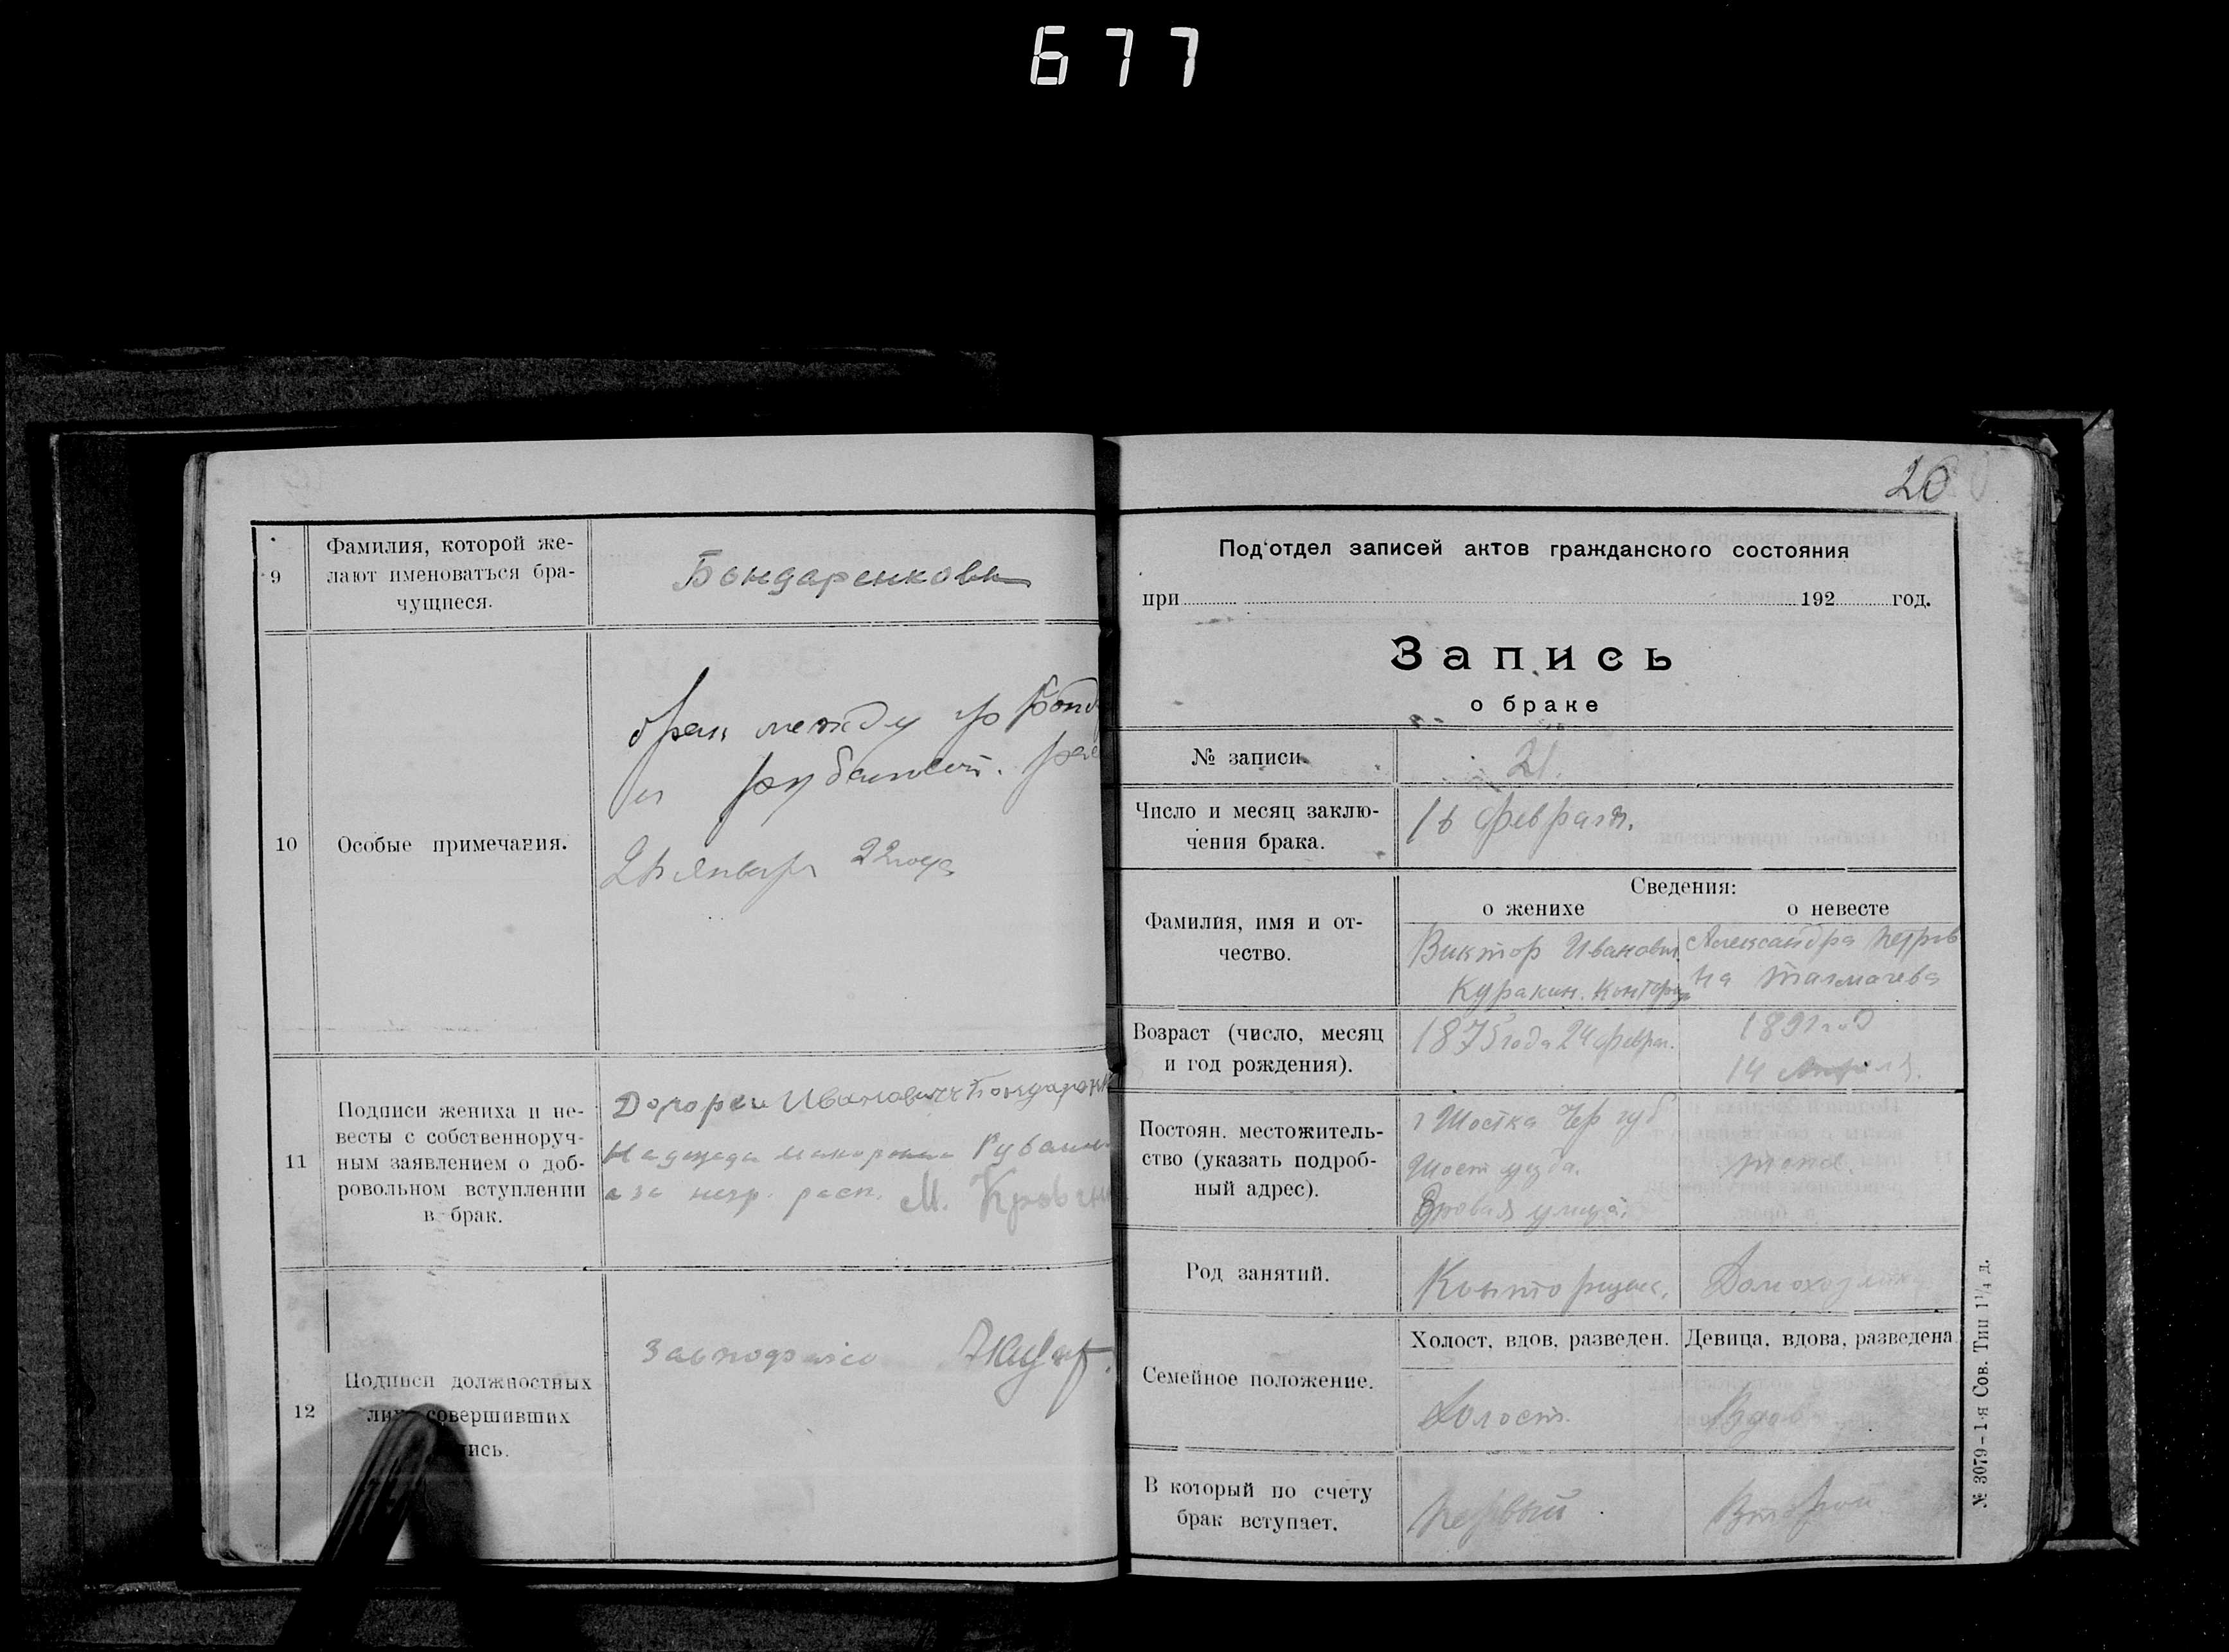 677
9
Фамилия, которой же-
лают именоваться бра-
чущиеся.
Бондаренковы
10
Особые примечания.
брак между гр Бонд
и Рубанкой.
января 22 года
11
Подписи жениха и не-
весты с собственноруч-
ным заявлением о доб-
ровольном вступлении
в брак.
Иванович Бондаренк
Надежда
а за негр. расп. М. Кравчен
12
Подписи должностных
лиц совершивших
пись.
20
Под'отдел записей актов гражданского состояния
при 192 год.
Запись
о браке
№ записи.
21.
Число и месяц заклю-
чения брака.
16 февраля.
Сведения:
о женихе
о невесте
Фамилия, имя и от-
чество.
Виктор Иванович
Куракин. Конторщ
Александра Петров
на Талмачева
Возраст (число, месяц
и год рождения).
1875 года 24 феврал.
1891 год
14 Апреля.
Постоян. местожитель-
ство (указать подроб-
ный адрес).
г Шостка Чер губ
Шост уезда.
улица.
тоже.
Род занятий.
Конторщик.
Домохоз
Семейное положение.
Холост, вдов, разведен.
Девица, вдова, разведена
Холост.
Вдова
В который по счету
брак вступает.
Первый
Второй
№ 3079 – 1-я Сов. Тип 1¼ д.